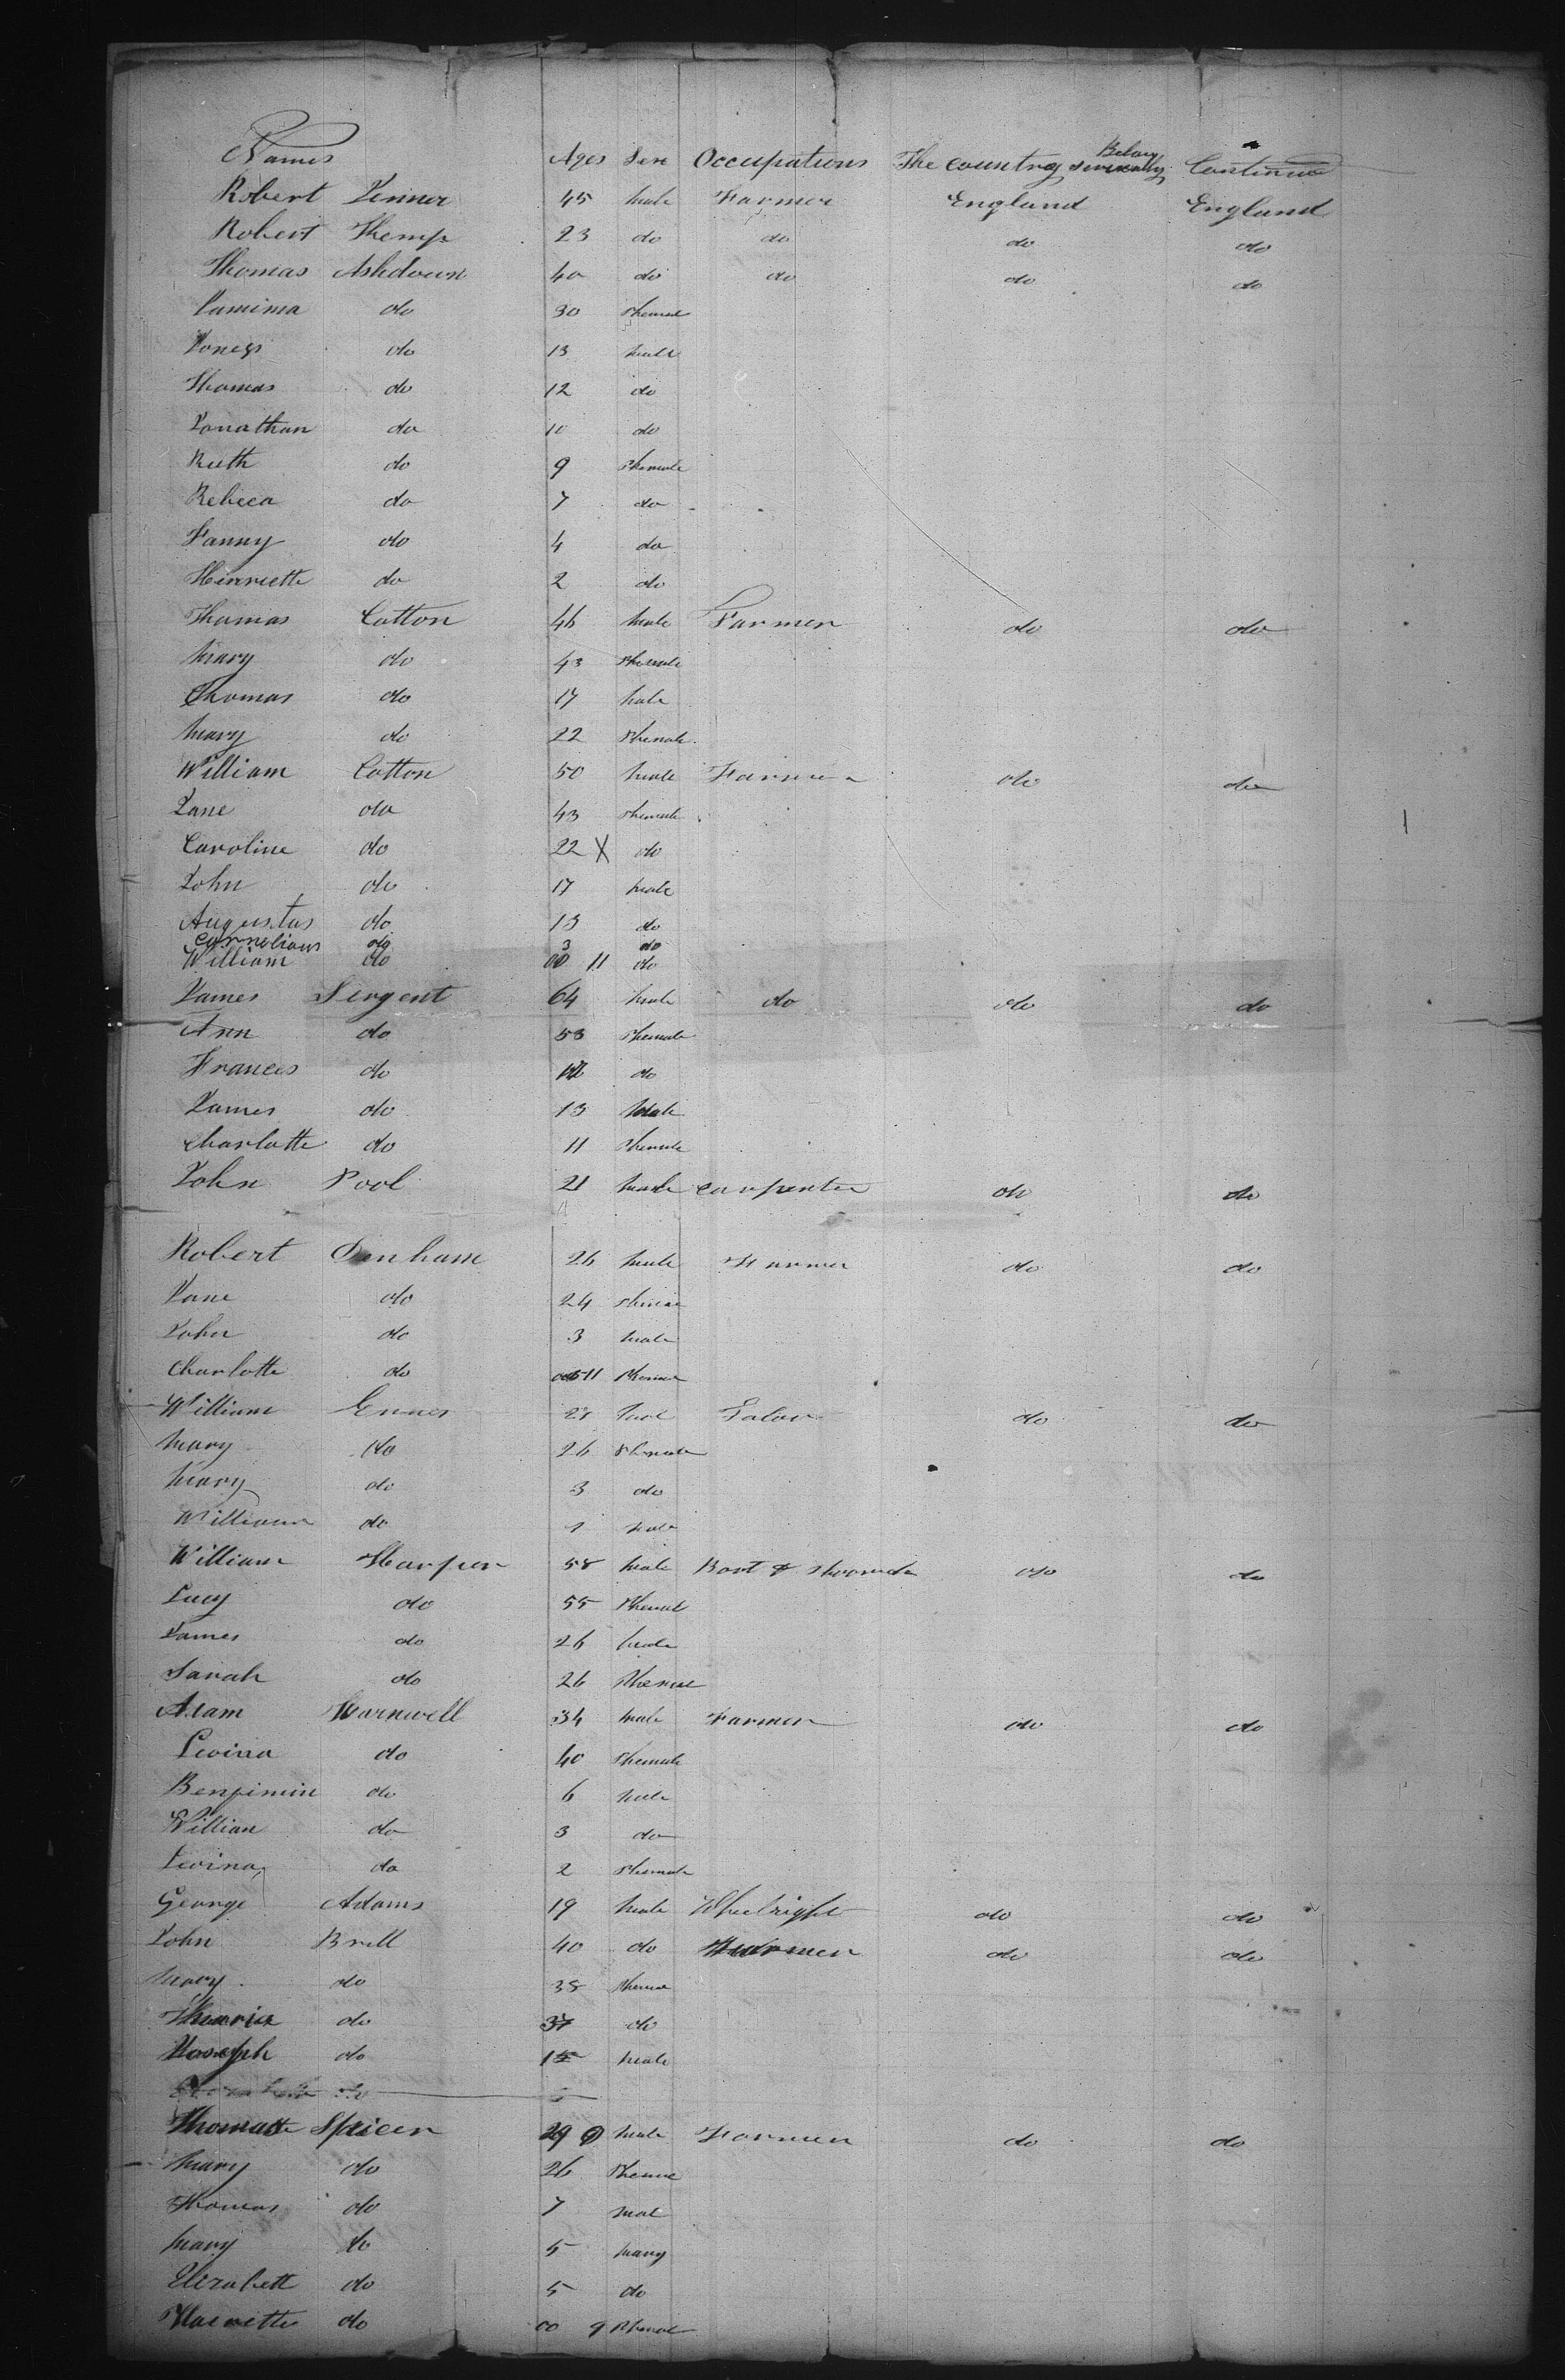 Names Ages Sex Occupations The country Severally Belong Continue
Robert Venner 45 male Farmer England England
Robert Hemp 23 do do do do
Thomas Ashdown 40 do do do do
Jamima do 30 Phemal
do 13 male
Thomas do 12 do
Jonathan do 10 do
Ruth do 9 Phemale
Rebeca do 7 do
Fanny do 4 do
Hinriette do 2 do
Thomas Cotton 46 male Farmer do do
Mary do 43 Phemale
Thomas do 17 male
Mary do 22 Phemale
William Cotton 50 male Farmer do do
Jane do 43 Phemale
Caroline do 22 X do
John do 17 male
Augustas do 13 do
Cornelious do 3 do
William do 00 11 do
James Sergent 64 male do do do
Ann do 53 Phemale
Frances do do
James do 13 Male
Charlotte do 11 Phemale
John Pool 21 male Carpenter do do
Robert Denham 26 male Farmer do do
Jane do 24
John do 3 male
Charlotte do 11
William 27 do do
Mary do 26 Phemale
Mary do 3 do
William do 1 male
William Harper 58 male Boot & do do
Lucy do 55 Phemal
James do 26 male
Sarah do 26
Adam 34 male Farmer do do
Levina do 40 Phemale
Benjimin do 6 male
Willian do 3 do
Levina do 2 Phemale
George Adams 19 male Wheelright do do
John Brill 40 do Farmer do do
Mary do 38
Maria do 37 do
Joseph do male
Spicer 29 male Farmer do do
Mary do 26
Thomas do 7 mal
Mary do 5 Mary
Elizabett do 5 do
do 00 9 Phemal